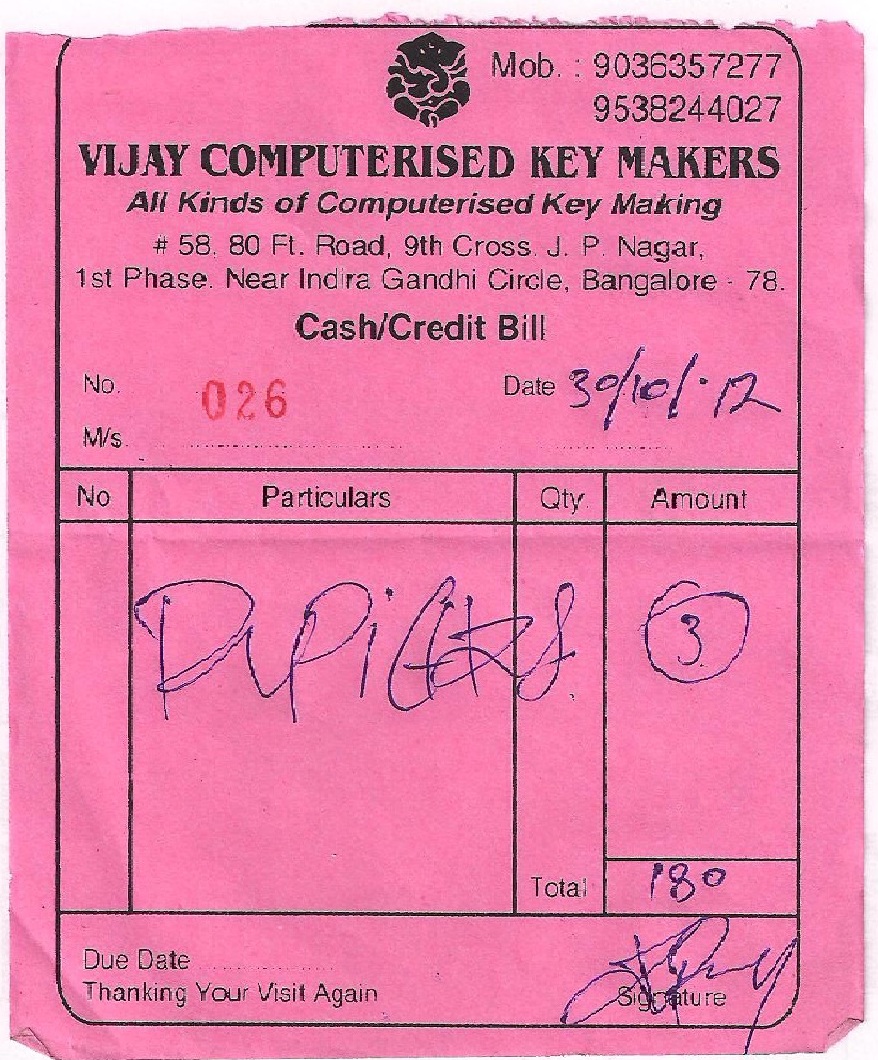 Mob. : 9036357277
9538244027
VIJAY COMPUTERISED KEY MAKERS
All Kinds of Computerised Key Making
# 58, 80 Ft. Road, 9th Cross, J. P. Nagar,
1st Phase. Near Indira Gandhi Circle, Bangalore - 78.
Cash/Credit Bill
No. 026 Date 30/10/12
M/s.
No Particulars Qty. Amount
3
Total 180
Due Date
Thanking Your Visit Again Signature